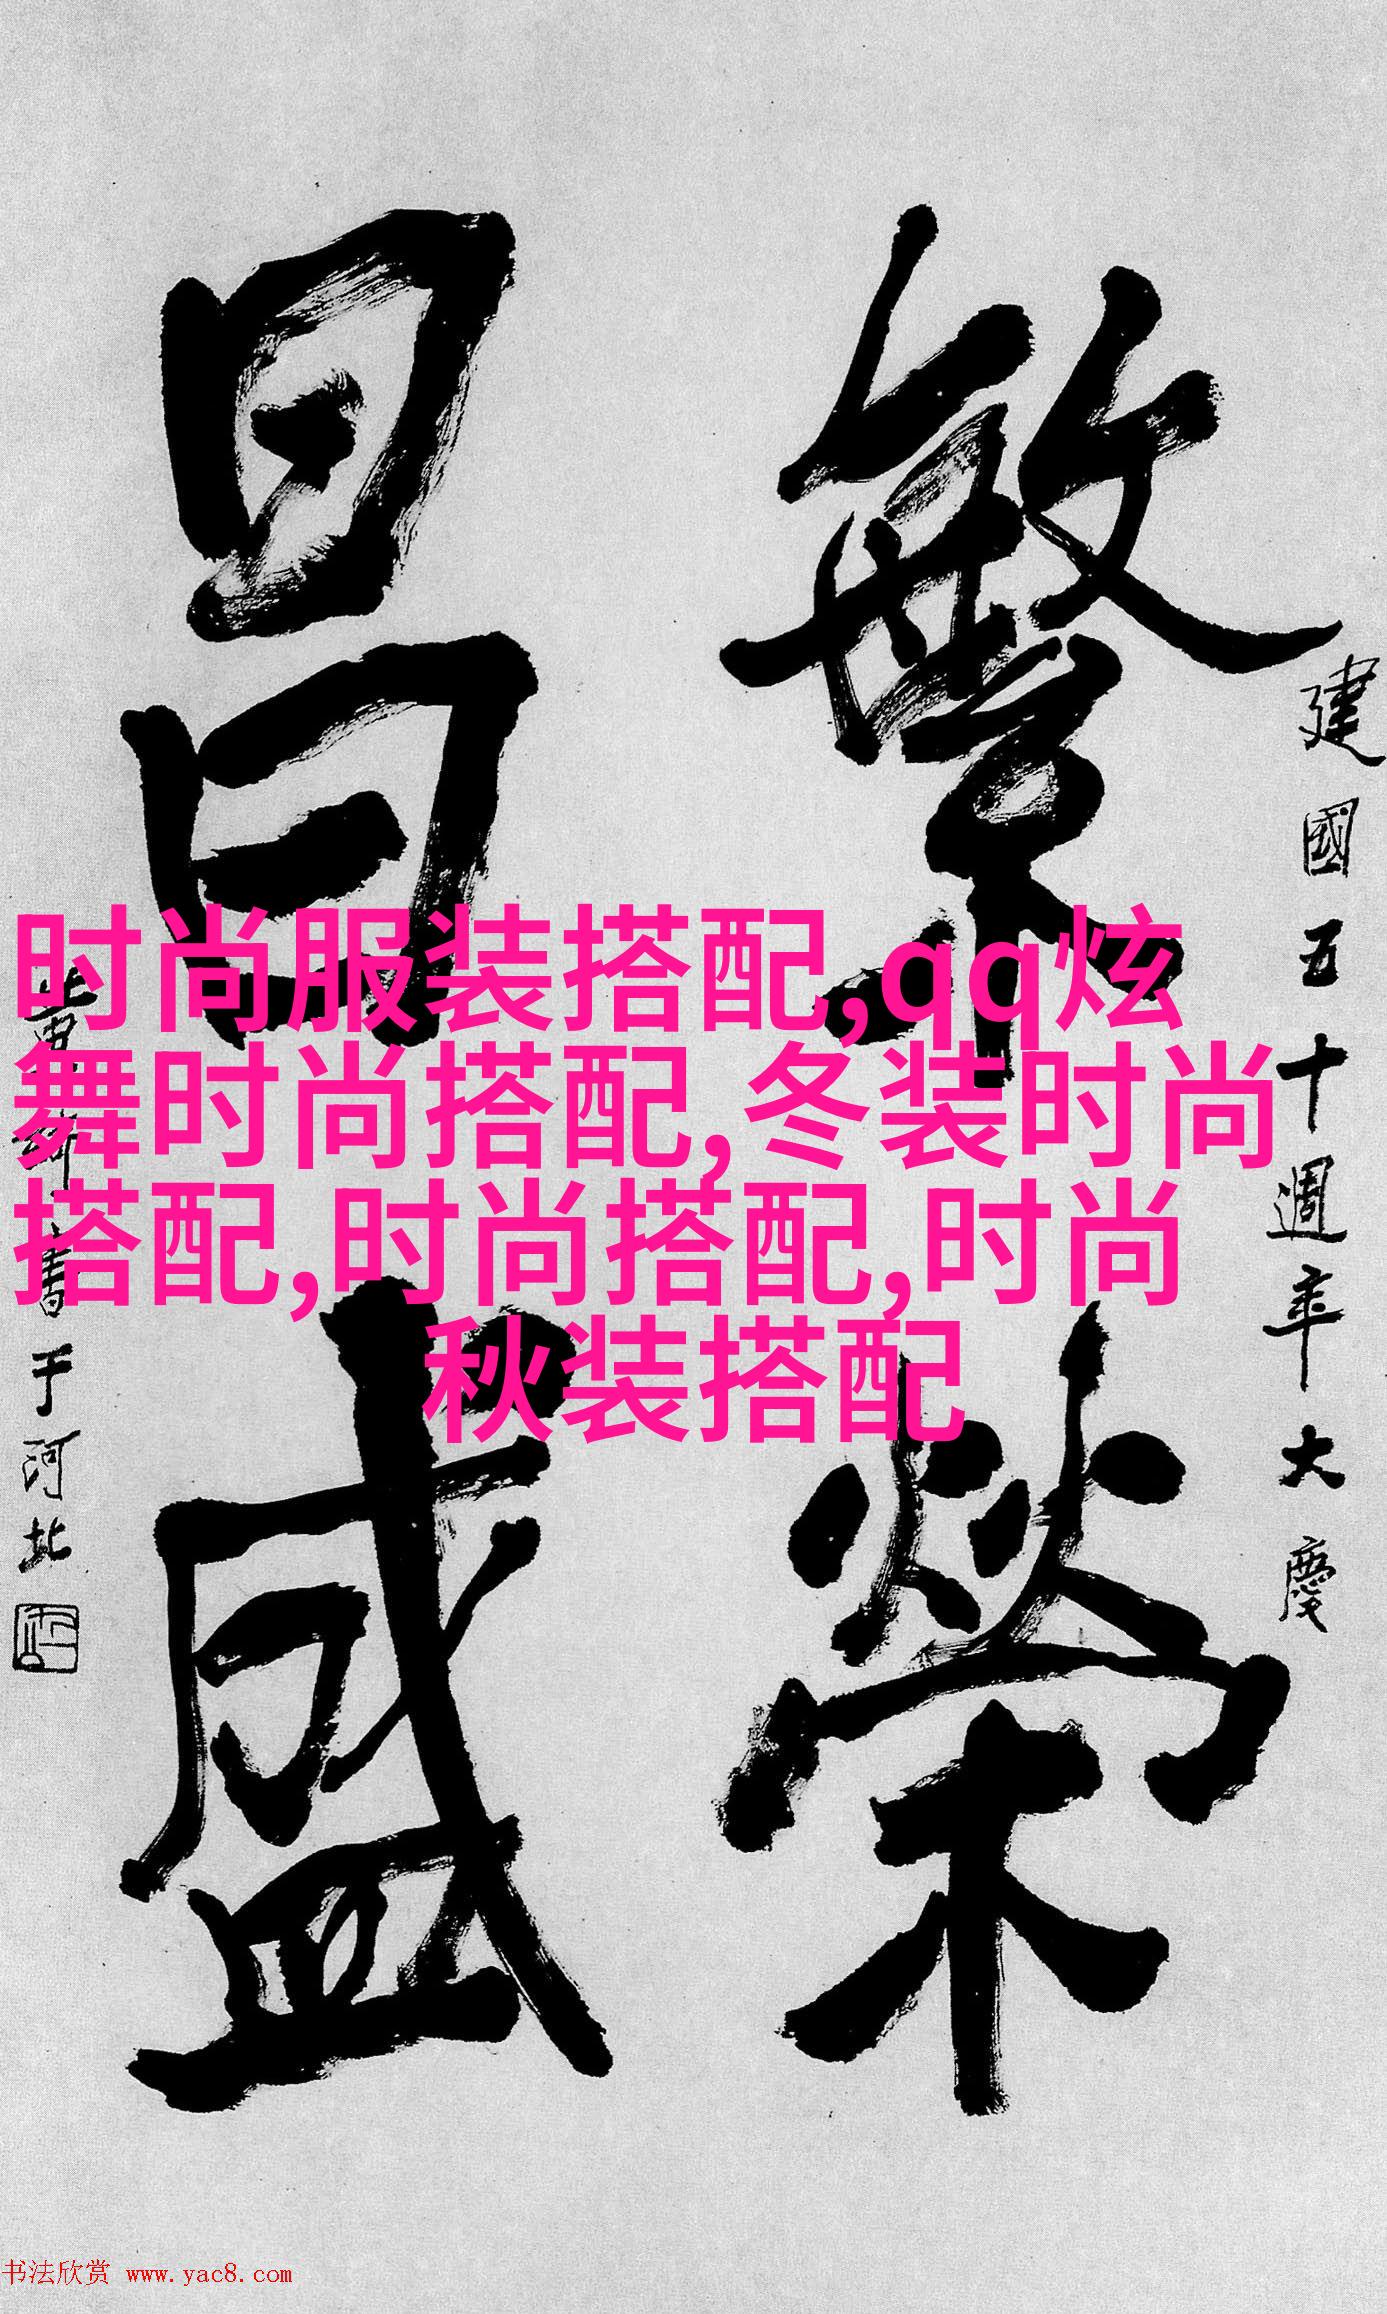 建國五十週年大慶
繁榮
昌盛
书于河北
时尚服装搭配,qq炫
舞时尚搭配,冬装时尚
搭配,时尚搭配,时尚
秋装搭配
书法欣赏 www.yac8.com